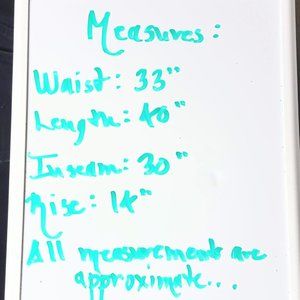 Measures:
Waist: 33"
Length: 40"
Inseam: 30"
Rise: 14"
All measurements are
approximate...